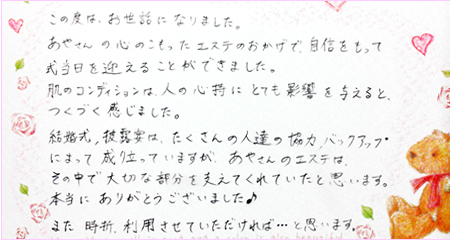 この度は、お世話になりました。
あやさんの心のこもったエステのおかげで、自信をもって
式当日を迎えることができました。
肌のコンディションは、人の心持にとても影響を与えると、
つくづく感じました。
結婚式、披露宴は、たくさんの人達の協力、バックアップ
によって成り立っていますが、あやさんのエステは、
その中で大切な部分を支えてくれていたと思います。
本当にありがとうございました♪
また時折、利用させていただければ…と思います。